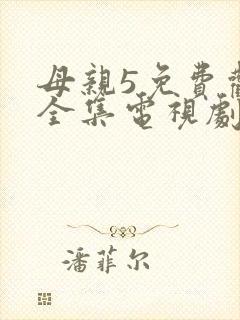 母親5免費
全集電視劇
潘菲尔